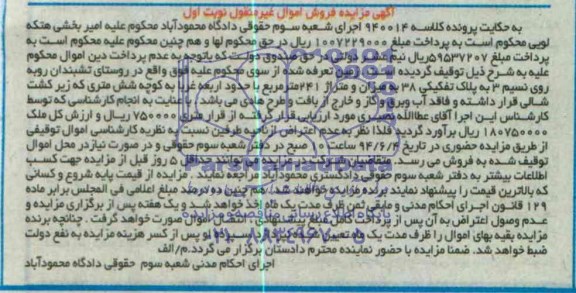 آگهی مزایده فروش اموال غیرمنقول نوبت اول
به حکایت پرونده کلاسه ۹۴۰۰۱۴ اجرای شعبه سوم حقوقی دادگاه محمودآباد محکوم علیه امیر بخشی هتکه
لویی محکوم است به پرداخت مبلغ ۱۰۰۷۲۲۹۰۰۰ ریال در حق محکوم لها و هم چنین محکوم علیه محکوم است به
پرداخت مبلغ ۵۹۵۳۷۲۰۷ ریال نیم عشر دولتی در حق صندوق دولت که باتوجه به عدم پرداخت دین اموال محکوم
علیه به شرح ذیل توقیف گردیده است. زمین تعرفه شده از سوی محکوم علیه فوق واقع در روستای تشبندان روبه
روی نسیم ۳ به پلاک تفکیکی ۳۸ به میزان و متراژ ۲۴۱ مترمربع با حدود اربعه غربا به کوچه شش متری که زیر کشت
شالی قرار داشته و فاقد آب وبرق و گاز و خارج از بافت و طرح هادی می باشد. با عنایت به انجام کارشناسی که توسط
کارشناس این اجرا آقای عطاالله نصیری مورد ارزیابی قرار گرفت از قرار متری ۷۵۰۰۰۰ ریال و ارزش کل ملک
۱۸۰۷۵۰۰۰۰ ریال برآورد گردید فلذا نظر به عدم اعتراض از ناحیه طرفین نسبت به نظریه کارشناسی اموال توقیفی
از طریق مزایده حضوری در تاریخ ۹۴/۶/ ساعت صبح در دفتر شعبه سوم حقوقی و در صورت نیاز در محل اموال
توقیف شده به فروش می رسد. متقاضیان شرکت در مزایده می توانند حداقل ۵ روز قبل از مزایده جهت کسب
اطلاعات بیشتر به دفتر شعبه سوم حقوقی دادگستری محمودآباد مراجعه نمایند. مزایده از قیمت پایه شروع و کسانی
که بالاترین قیمت را پیشنهاد نمایند برنده مزایده خواهند شد. هم چنین ده درصد مبلغ اعلامی فی المجلس برابر ماده
۱۲۹ قانون اجرای احکام مدنی و مابقی ثمن ظرف مدت یک ماه اخذ خواهد شد و یک هفته پس از برگزاری مزایده و
عدم وصول اعتراض به آن پس از پرداخت کامل مبلغ پیشنهادی انتقال اموال صورت خواهد گرفت. چنانچه برنده
مزایده بقیه بهای اموال را ظرف مدت یک ماه تعیین شده نپردازد سپرده او پس از کسر هزینه مزایده به نفع دولت
ضبط خواهد شد. ضمنا مزایده با حضور نماینده محترم دادستان برگزار می گردد.م/الف
اجرای احکام مدنی شعبه سوم حقوقی دادگاه محمودآباد